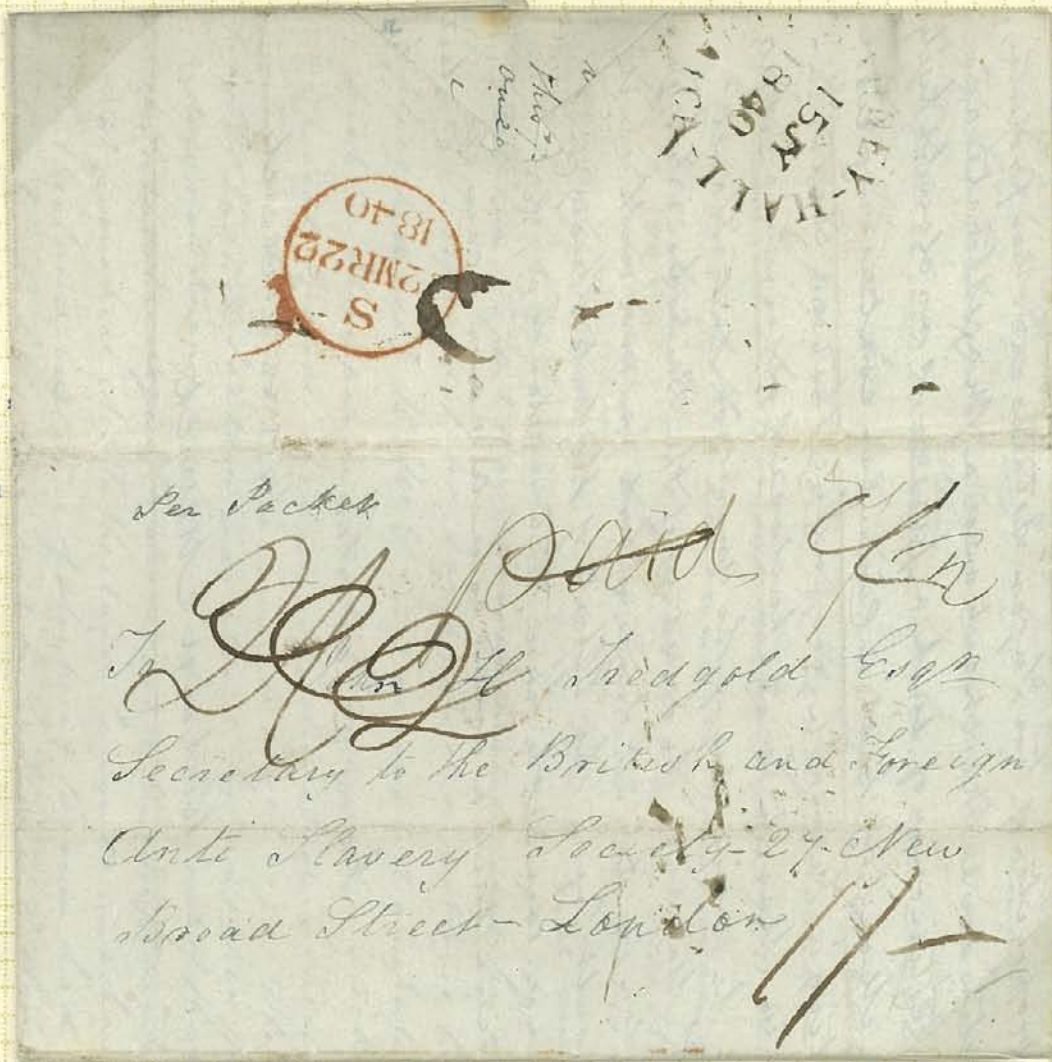 NEY-HALL-
15 JY
1840
1840
22MR22
S
Per Packet
paid
H Tredgold Esqr
Secretary to the British and Foreign
Anti Slavery Society - 27 - New
Broad Street - London
1/-